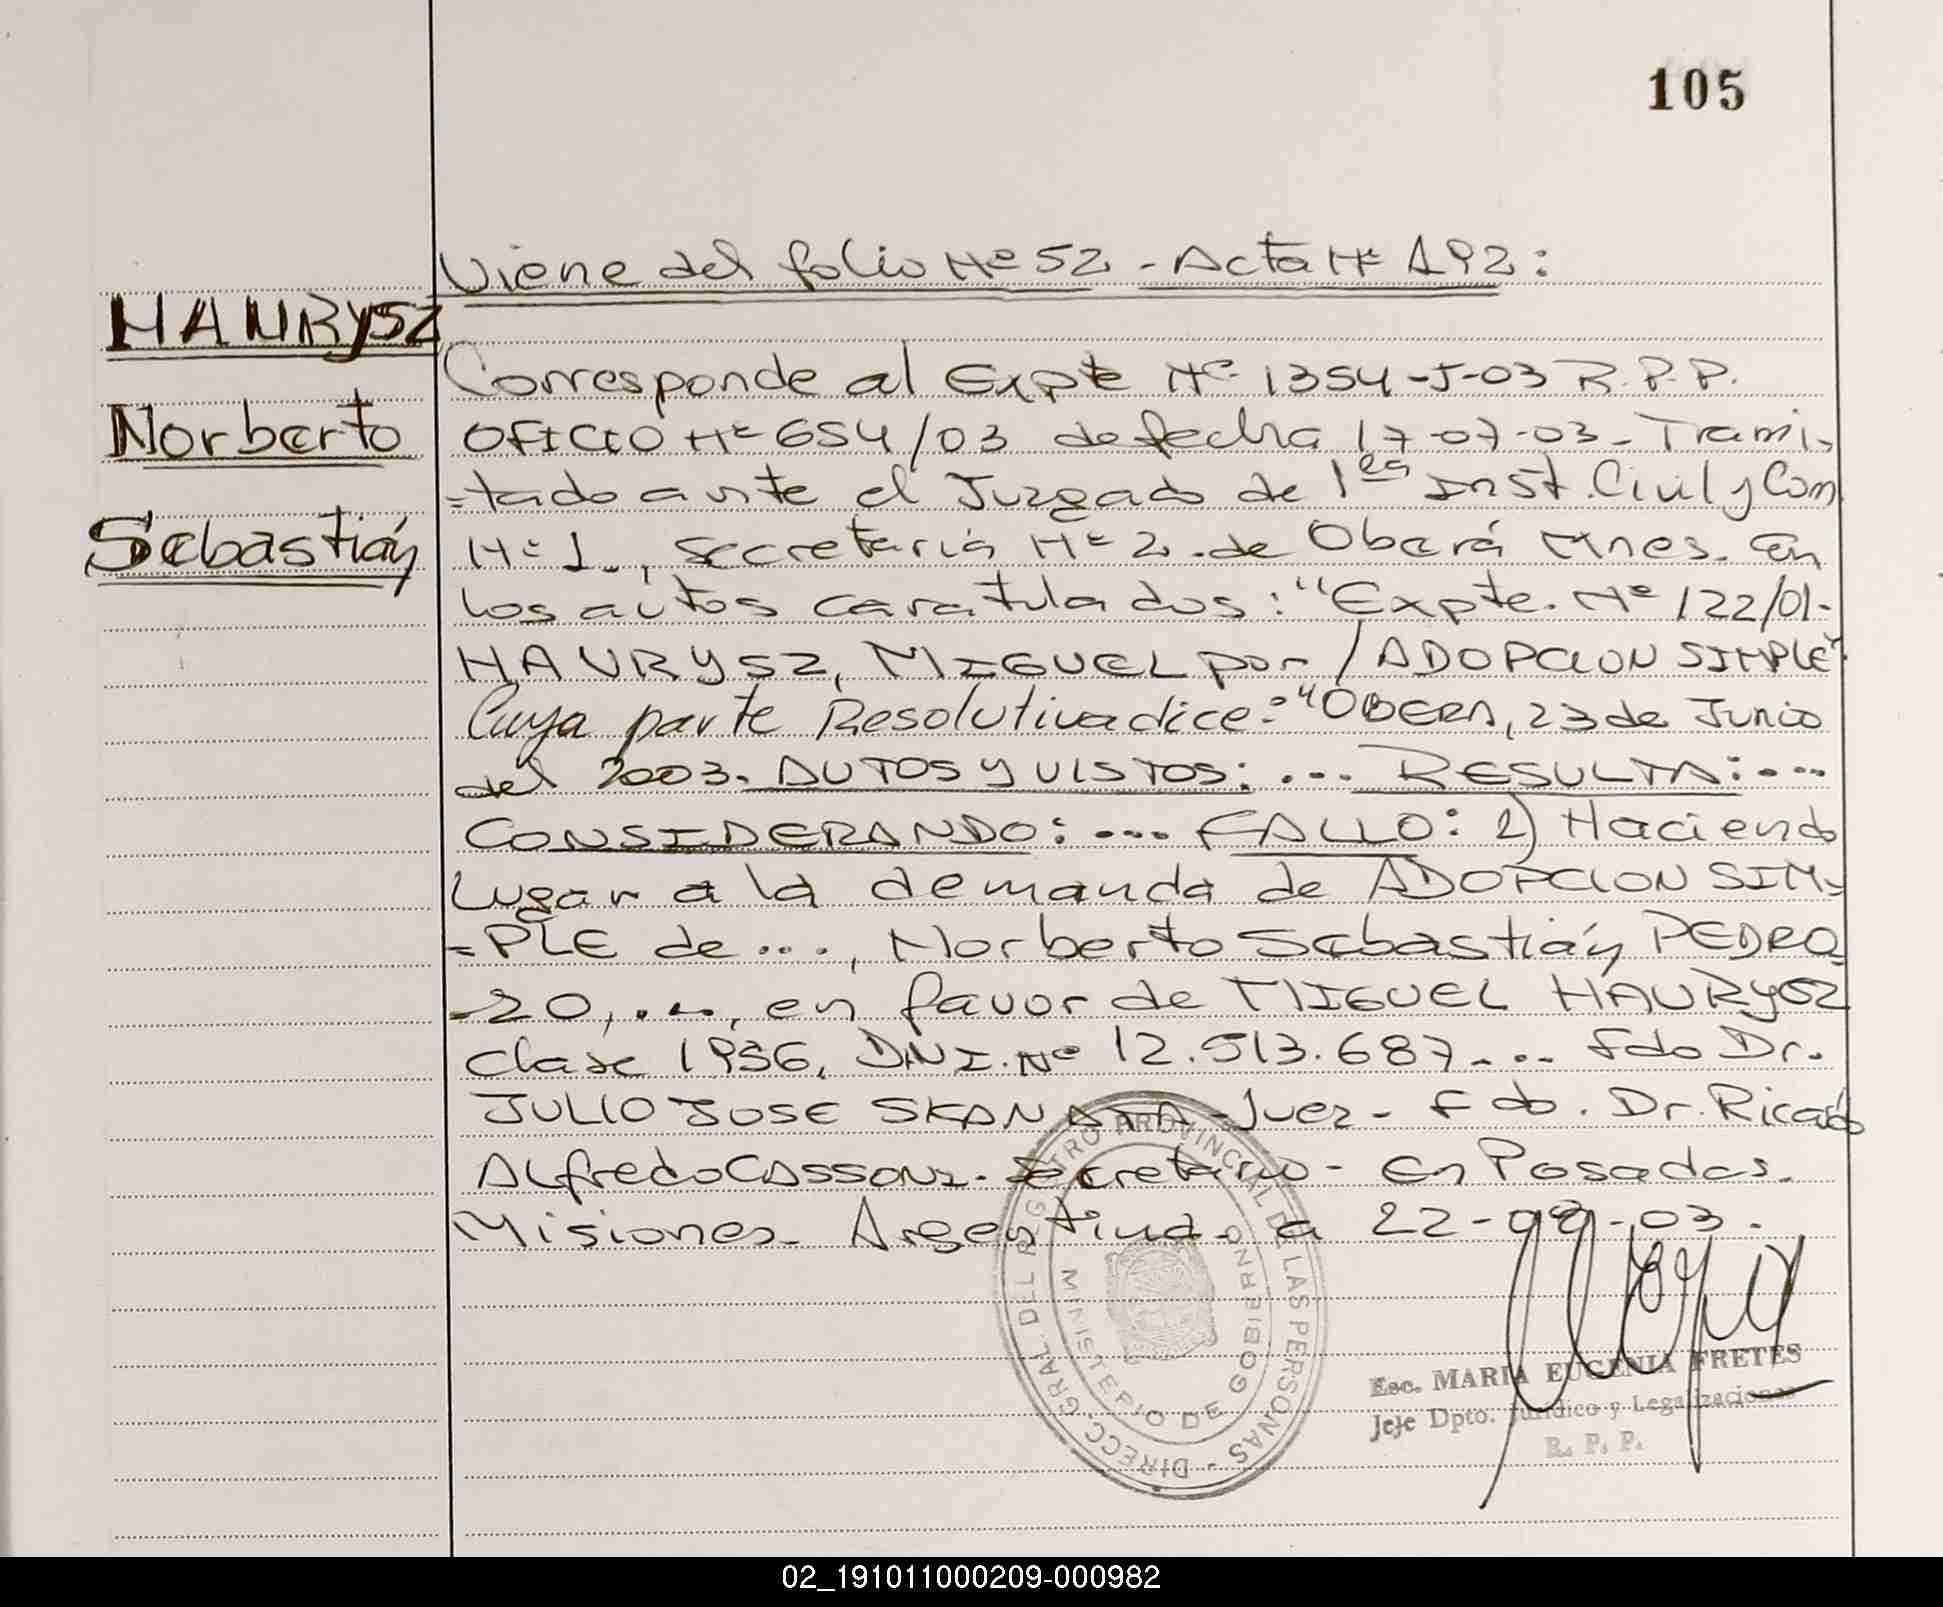 105
Viene del folio Nº 52 - Acta Nº 192:
HAURYSZ
Norberto
Sebastián
Corresponde al Expte Nº 1354-J-03 R.P.P.
OFICIO Nº 654/03 de fecha 17-07-03 - Trami-
-tado ante el Juzgado de 1era Inst. Civil y Com
Nº 1., Secretaria Nº 2. de Oberá Mnes. En
los autos caratulados: "Expte. Nº 122/01-
HAURYSZ, MIGUEL por / ADOPCION SIMPLE"
Cuya parte Resolutiva dice: "OBERA, 23 de Junio
del 2003. AUTOS Y VISTOS: ... RESULTA: ...
CONSIDERANDO: ... FALLO: 1) Haciendo
Lugar a la demanda de ADOPCION SIM-
-PLE de ..., Norberto Sebastián PEDRO-
-ZO, ..., en favor de MIGUEL HAURYSZ
clase 1956, DNI. Nº 12.513.687 ... Fdo Dr.
JULIO JOSE SKANATA - Juez - Fdo. Dr. Ricardo
Alfredo CASSONI. Secretario - En Posadas.
Misiones - Argentina - a 22-09-03.
DIRECC. GRAL. DEL REGISTRO PROVINCIAL DE LAS PERSONAS -
MINISTERIO DE GOBIERNO
Esc. MARIA EUGENIA FRETES
Jefe Dpto. Jurídico y Legalizaciones
R. P. P.
02_191011000209-000982